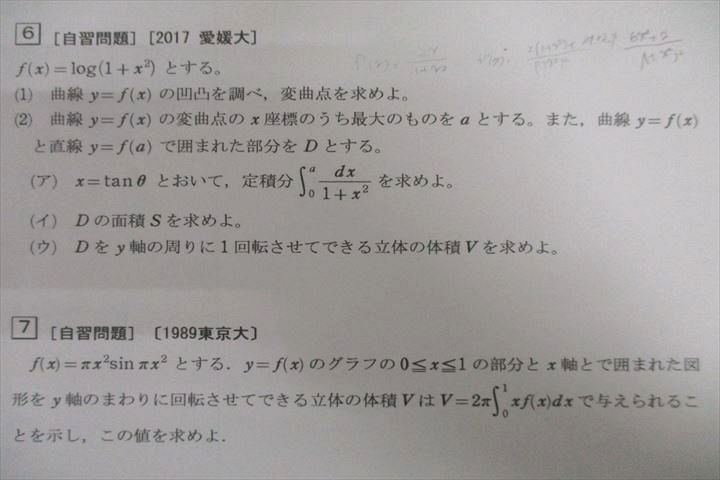 6 [自習問題] [2017 愛媛大]
f(x)=log(1+x²) とする。
(1) 曲線 y=f(x) の凹凸を調べ，変曲点を求めよ。
(2) 曲線 y=f(x) の変曲点の x 座標のうち最大のものを a とする。また，曲線 y=f(x)
と直線 y=f(a) で囲まれた部分を D とする。
(ア) x=tanθ とおいて，定積分∫₀ᵃ dx/(1+x²) を求めよ。
(イ) D の面積 S を求めよ。
(ウ) D を y 軸の周りに 1 回転させてできる立体の体積 V を求めよ。
7 [自習問題] 〔1989東京大〕
f(x)=πx²sin πx² とする．y=f(x) のグラフの 0≦x≦1 の部分と x 軸とで囲まれた図
形を y 軸のまわりに回転させてできる立体の体積 V は V=2π∫₀¹xf(x)dx で与えられるこ
とを示し，この値を求めよ．